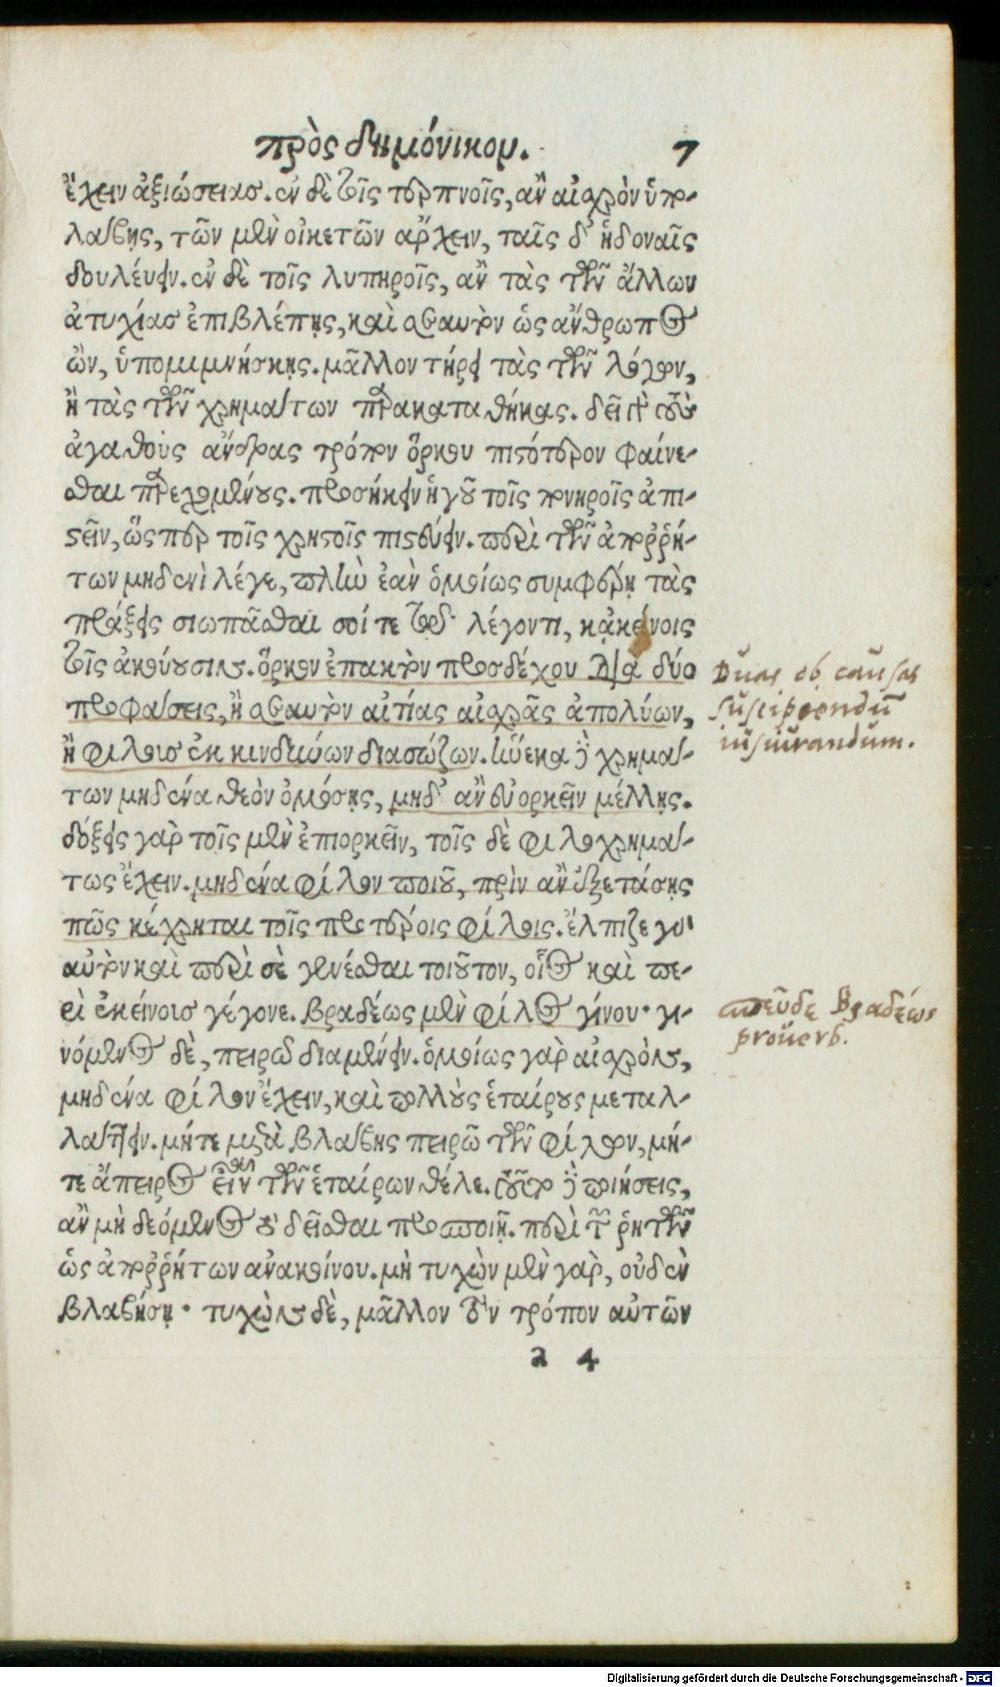 πρὸς δημόνικον. 7
ἔχειν ἀξιώσειας. ἐν δὲ τοῖς τερπνοῖς, ἂν αἰσχρὸν ὑπο-
λάβῃς, τῶν μὲν οἰκετῶν ἄρχειν, ταῖς δ' ἡδοναῖς
δουλεύειν. ἐν δὲ τοῖς λυπηροῖς, ἂν τὰς τῶν ἄλλων
ἀτυχίας ἐπιβλέπῃς, καὶ σαυτὸν ὡς ἄνθρωπος
ὢν, ὑπομιμνήσκῃς. μᾶλλον τήρει τὰς τῶν λόγων,
ἢ τὰς τῶν χρημάτων παρακαταθήκας. δεῖ γὰρ τοὺς
ἀγαθοὺς ἄνδρας τρόπον ὅρκου πιστότερον φαίνε-
σθαι παρεχομένους. προσήκειν ἡγοῦ τοῖς πονηροῖς ἀπι-
στεῖν, ὥσπερ τοῖς χρηστοῖς πιστεύειν. περὶ τῶν ἀποῤῥή-
των μηδενὶ λέγε, πλὴν ἐὰν ὁμοίως συμφέρῃ τὰς
πράξεις σιωπᾶσθαι σοί τε τῷ λέγοντι, κἀκείνοις
τοῖς ἀκούουσιν. ὅρκον ἐπακτὸν προσδέχου διὰ δύο
προφάσεις, ἢ σαυτὸν αἰτίας αἰσχρᾶς ἀπολύων,
ἢ φίλους ἐκ κινδύνων διασώζων. ἕνεκα δὲ χρημά-
των μηδένα θεὸν ὀμόσῃς, μηδ' ἂν εὐορκεῖν μέλλῃς.
δόξεις γὰρ τοῖς μὲν ἐπιορκεῖν, τοῖς δὲ φιλοχρημά-
τως ἔχειν. μηδένα φίλον ποιοῦ, πρὶν ἂν ἐξετάσῃς
πῶς κέχρηται τοῖς προτέροις φίλοις. ἔλπιζε γὰρ
αὐτὸν καὶ περὶ σὲ γενέσθαι τοιοῦτον, οἷος καὶ πε-
ρὶ ἐκείνους γέγονε. βραδέως μὲν φίλος γίνου· γι-
νόμενος δὲ, πειρῶ διαμένειν. ὁμοίως γὰρ αἰσχρὸν,
μηδένα φίλον ἔχειν, καὶ πολλοὺς ἑταίρους μεταλ-
λάττειν. μήτε μετὰ βλάβης πειρῶ τῶν φίλων, μή-
τε ἄπειρος εἶναι τῶν ἑταίρων θέλε. τοῦτο δὲ ποιήσεις,
ἂν μὴ δεόμενος τὸ δεῖσθαι προσποιῇ. περὶ τῶν ῥητῶν
ὡς ἀποῤῥήτων ἀνακοίνου. μὴ τυχὼν μὲν γὰρ, οὐδὲν
βλαβήσῃ· τυχὼν δὲ, μᾶλλον τὸν τρόπον αὐτῶν
a 4
Duas ob causas
suscipiendū
iusiurandum.
σπεῦδε βραδέως
prouerb.
Digitalisierung gefördert durch die Deutsche Forschungsgemeinschaft - DFG